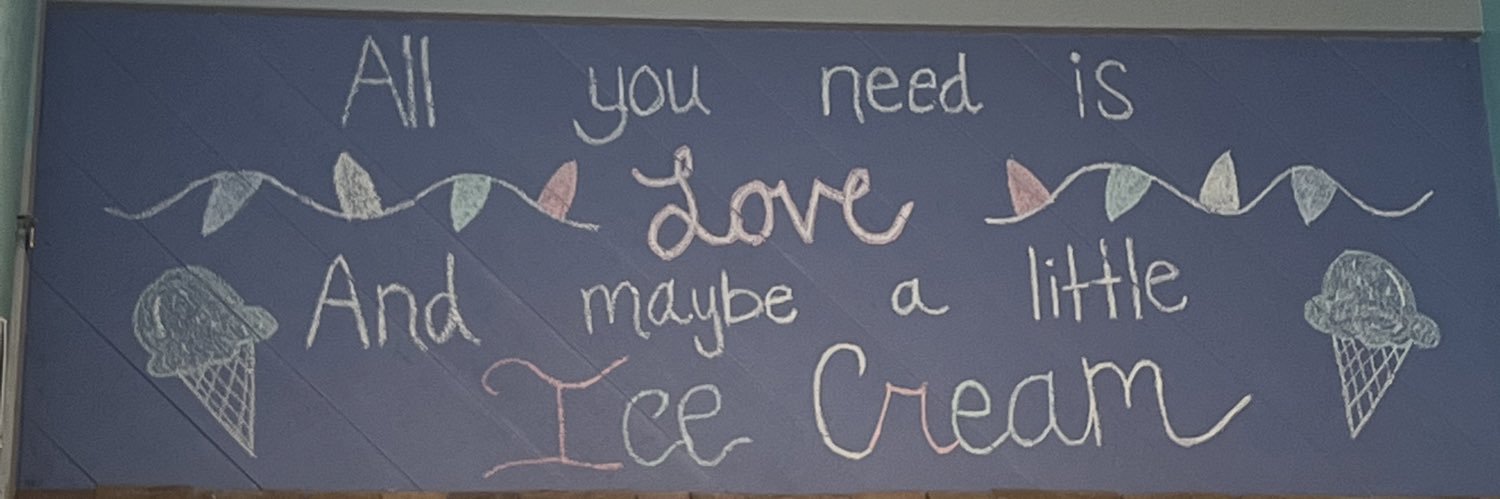 All you need is
Love
And maybe a little
Ice Cream